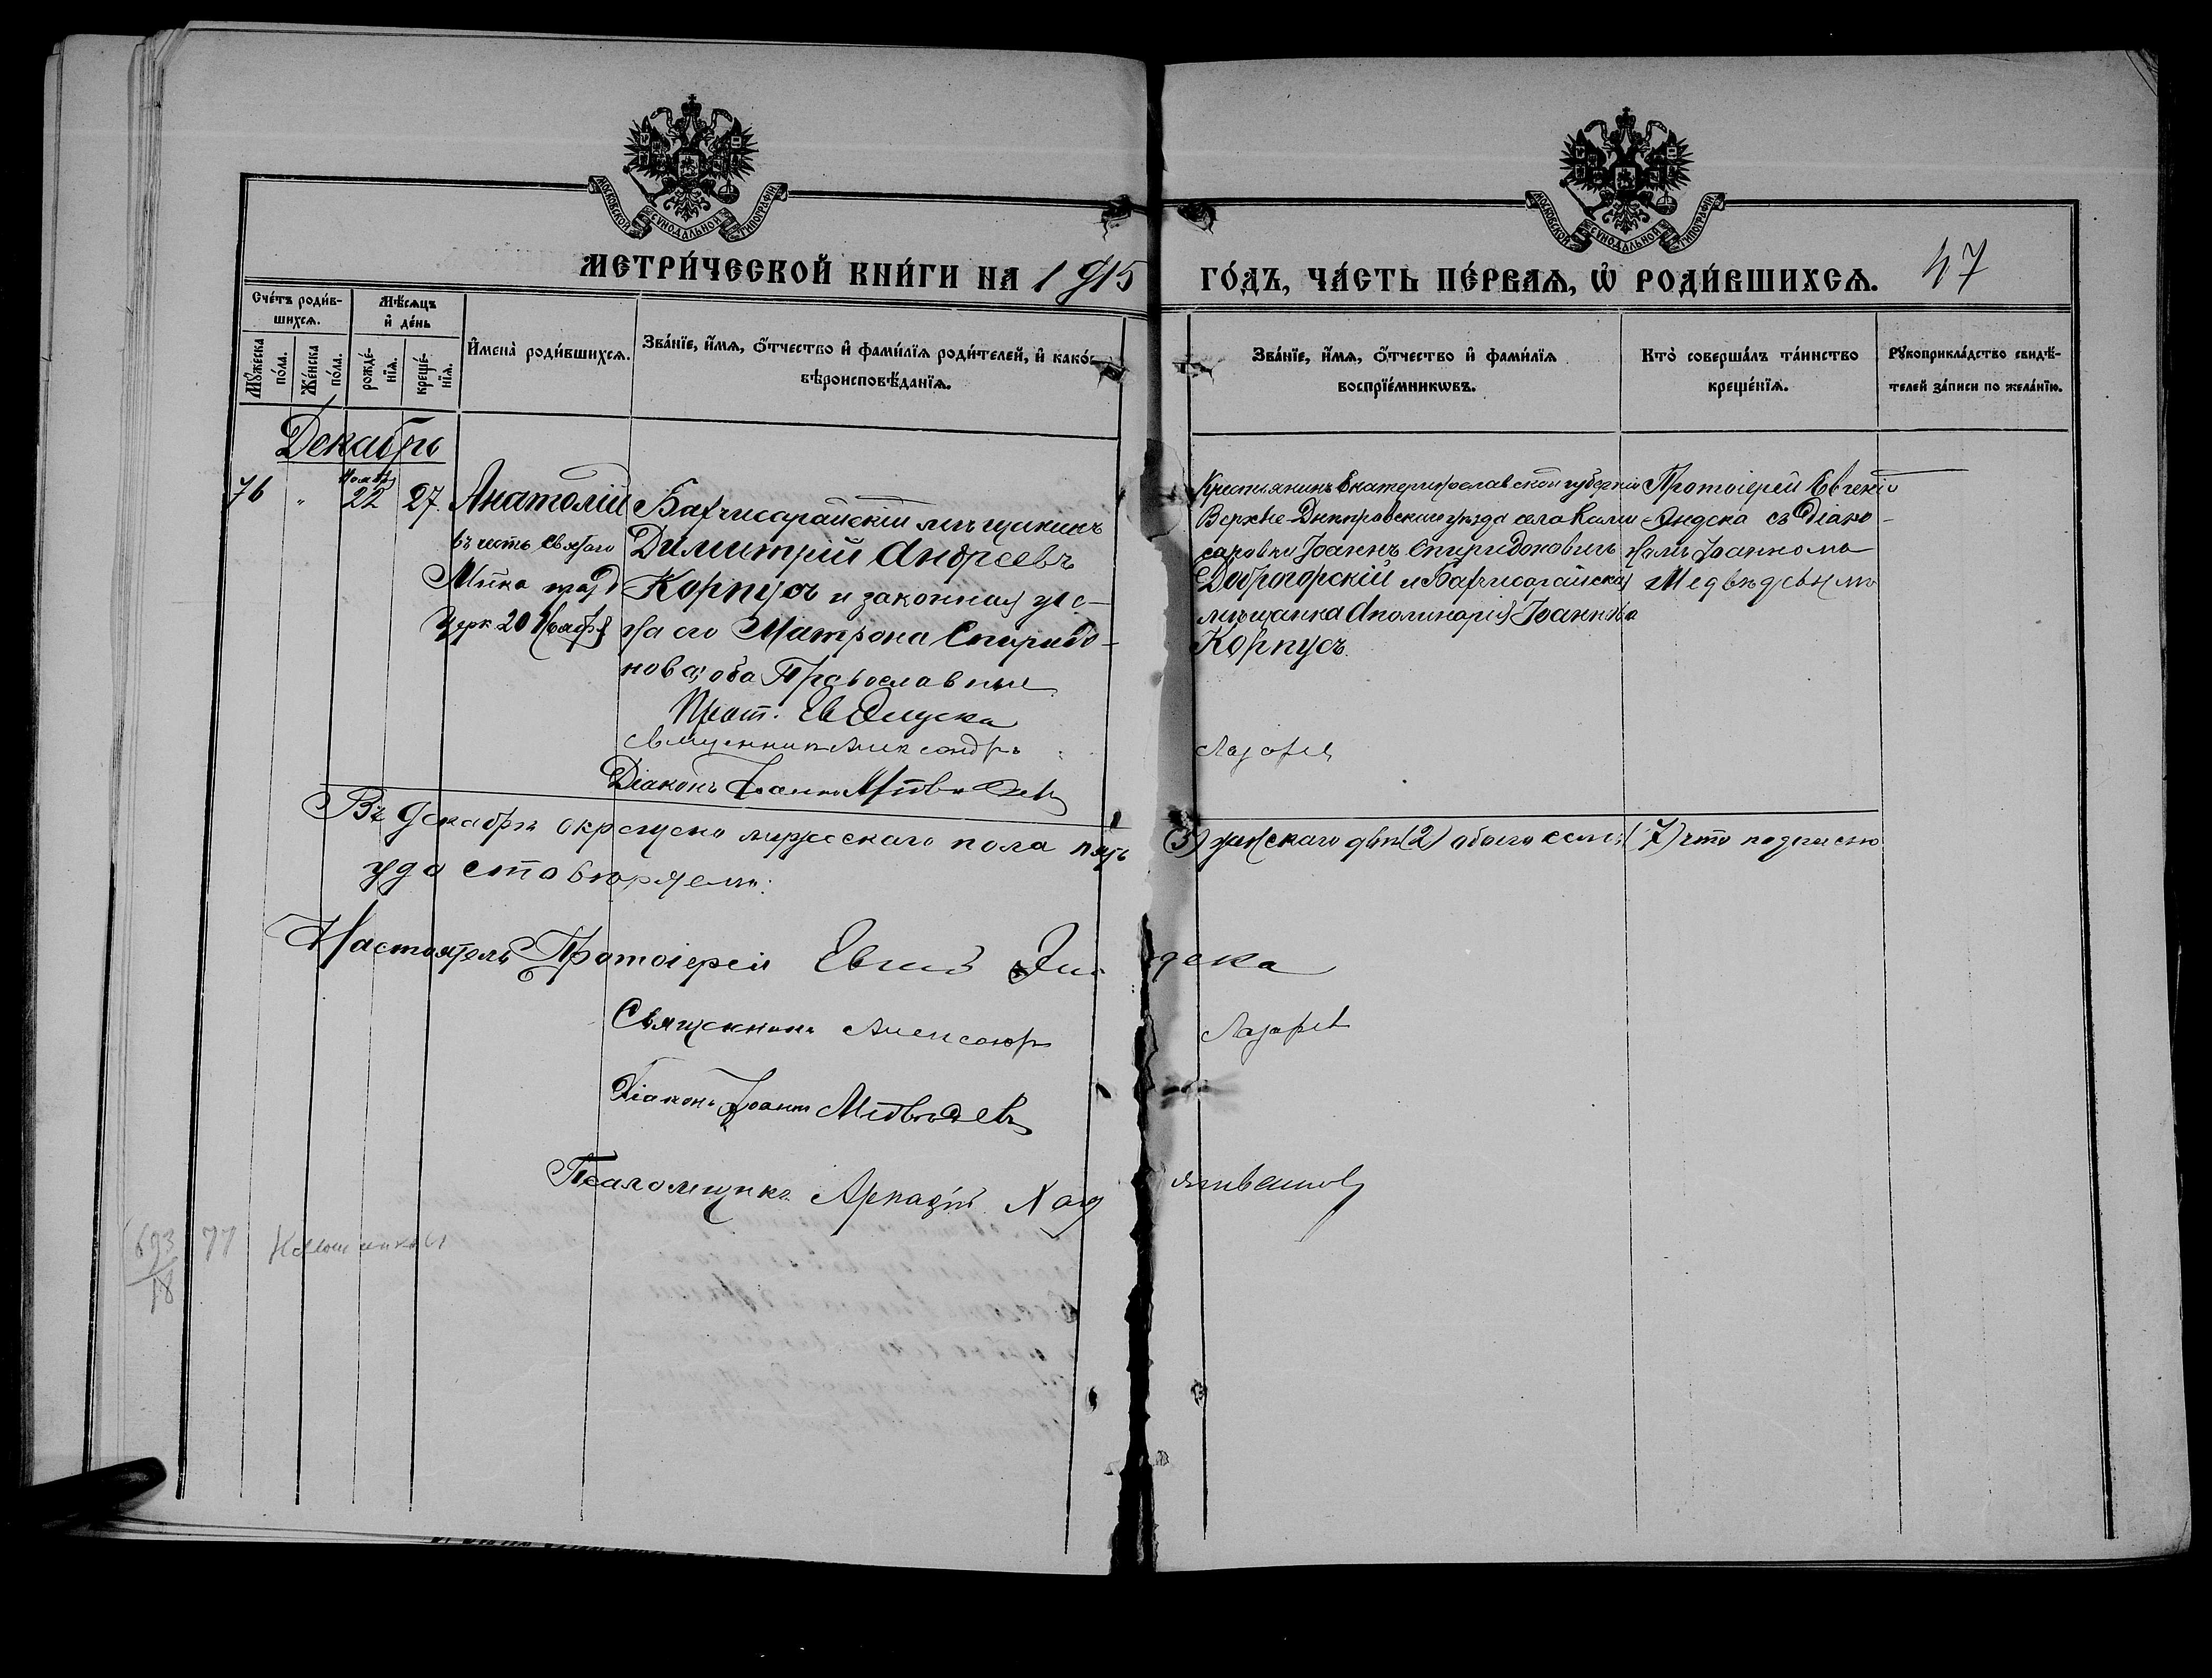 МОСКОВСКОЙ СУНОДАЛЬНОЙ ТИПОГРАФІИ
МОСКОВСКОЙ СУНОДАЛЬНОЙ ТИПОГРАФІИ
МЕТРИ́ЧЕСКОЙ КНИ́ГИ НА 1915 ГО́ДЪ, ЧА́СТЬ ПЕ́РВАѦ, Ѡ РОДИ́ВШИХСѦ. 47
Сче́тъ роди́вшихсѧ.
Мꙋ́жеска по́ла.
Же́нска по́ла.
Мѣ́сѧцъ и҆ де́нь
рожде́нїѧ.
креще́нїѧ.
И҆мена̀ роди́вшихсѧ.
Зва́нїе, и҆́мѧ, ѻ҆́тчество и҆ фами́лїѧ роди́телей, и҆ како́г
вѣроисповѣ́данїѧ.
Зва́нїе, и҆́мѧ, ѻ҆́тчество и҆ фами́лїѧ
воспрїе́мникѡвъ.
Кто̀ соверша́лъ та́инство
креще́нїѧ.
Рꙋкоприкла́дство свидѣ́-
телей за́писи по жела́нїю.
Декабрь
76 " Ноября 22 27
Анатолій
въ честь Святого
Мчка
20 Ноября
Бахчисарайскій мѣщанинъ
Димитрій Андреевъ
Корпусъ и законная же-
на его Матрона Спиридо-
нова, оба Православные
Прот.
Священникъ Александръ Лазаревъ
Діаконъ Іоаннъ Медвѣдевъ
Крестьянинъ Екатеринославской губерніи
Верхне-Днѣпровскаго уѣзда села Коми-
саровки Іоаннъ Спиридоновичъ
Доброгорскій и Бахчисарайская
мѣщанка Аполинарія Іоаннова
Корпусъ.
Протоіерей Евгеній
Эндека съ Діако-
номъ Іоанномъ
Медвѣдевымъ
Въ Декабрѣ окрещено мужескаго пола пять (5) женскаго двѣ (2) обоего семь (7) что подписью
удостовѣряемъ:
Настоятель Протоіерей Евгеній Эндека
Священникъ Александръ Лазаревъ
Діаконъ Іоаннъ Медвѣдевъ
Псаломщикъ Аркадій
693
18
77